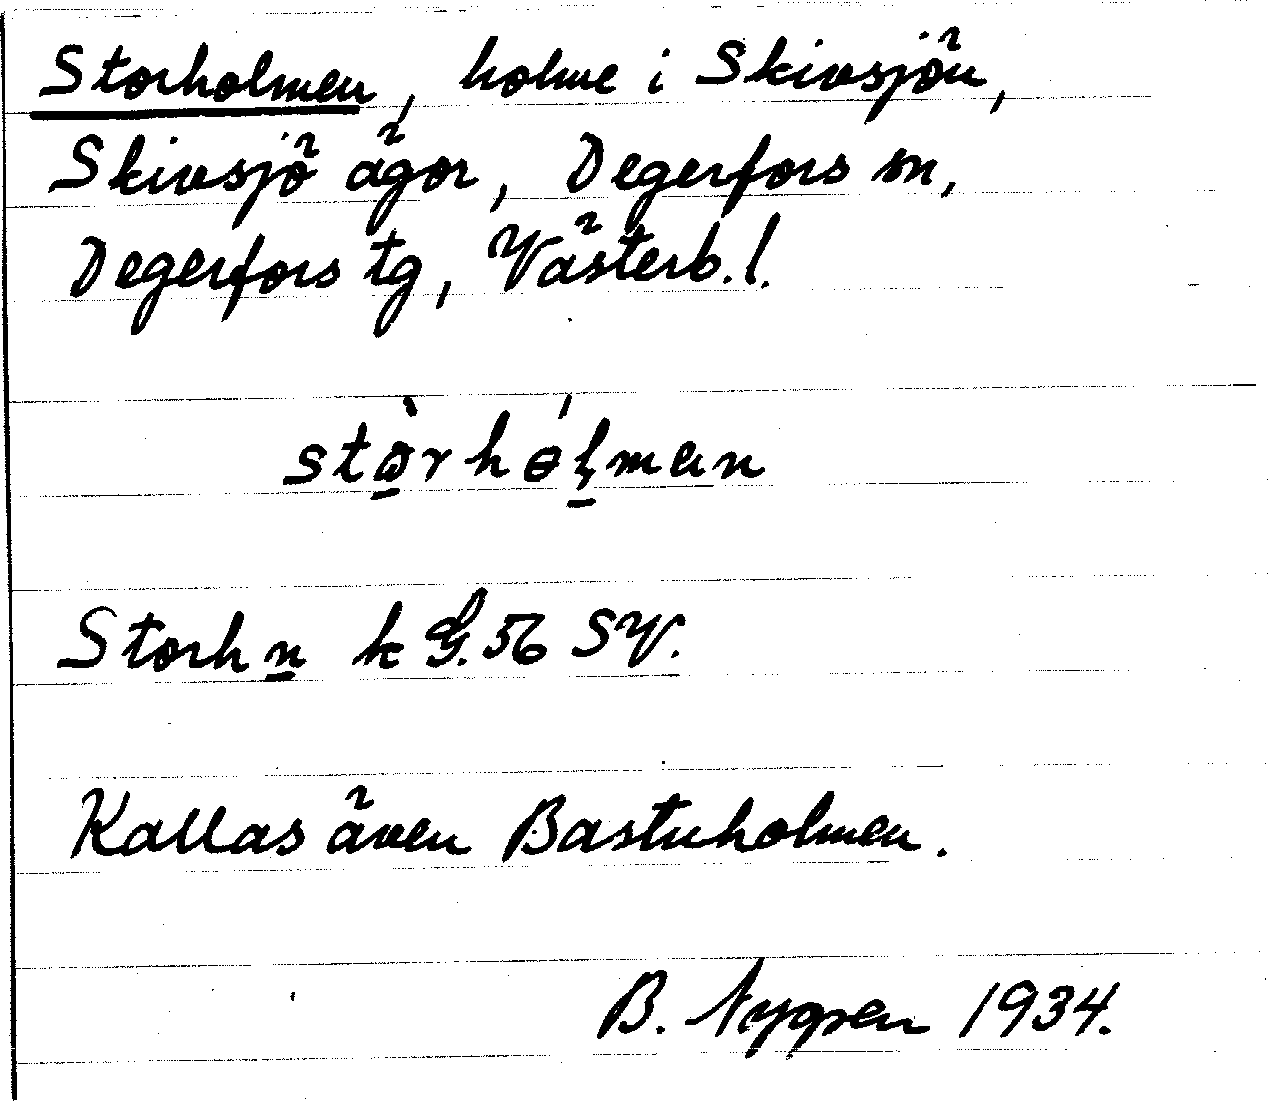 Storholmen, holme i Skivsjön,
Skivsjö ägor, Degerfors sn,
Degerfors tg, Västerb. l.
stò̱rhɵ́ḻman
Storhn k G. 56 SV.
Kallas även Bastuholmen.
B. Nygren 1934.